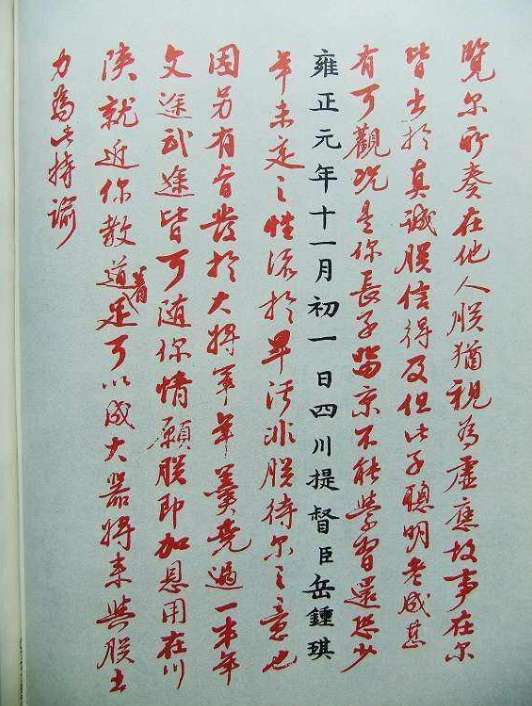 覽尔所奏在他人朕猶視為虛應故事在尔
皆出於真誠朕信得及但此子聰明老成甚
有可觀況是你長子留京不能學習還恐少
雍正元年十一月初一日四川提督臣岳鍾琪
年未定之性流於卑污非朕待尔之意也
因另有旨發於大將軍年羹堯過一半年
文途武途皆可隨你情願朕即加恩用在川
陝就近你教道着足可以成大器將來與朕出
力為此特諭